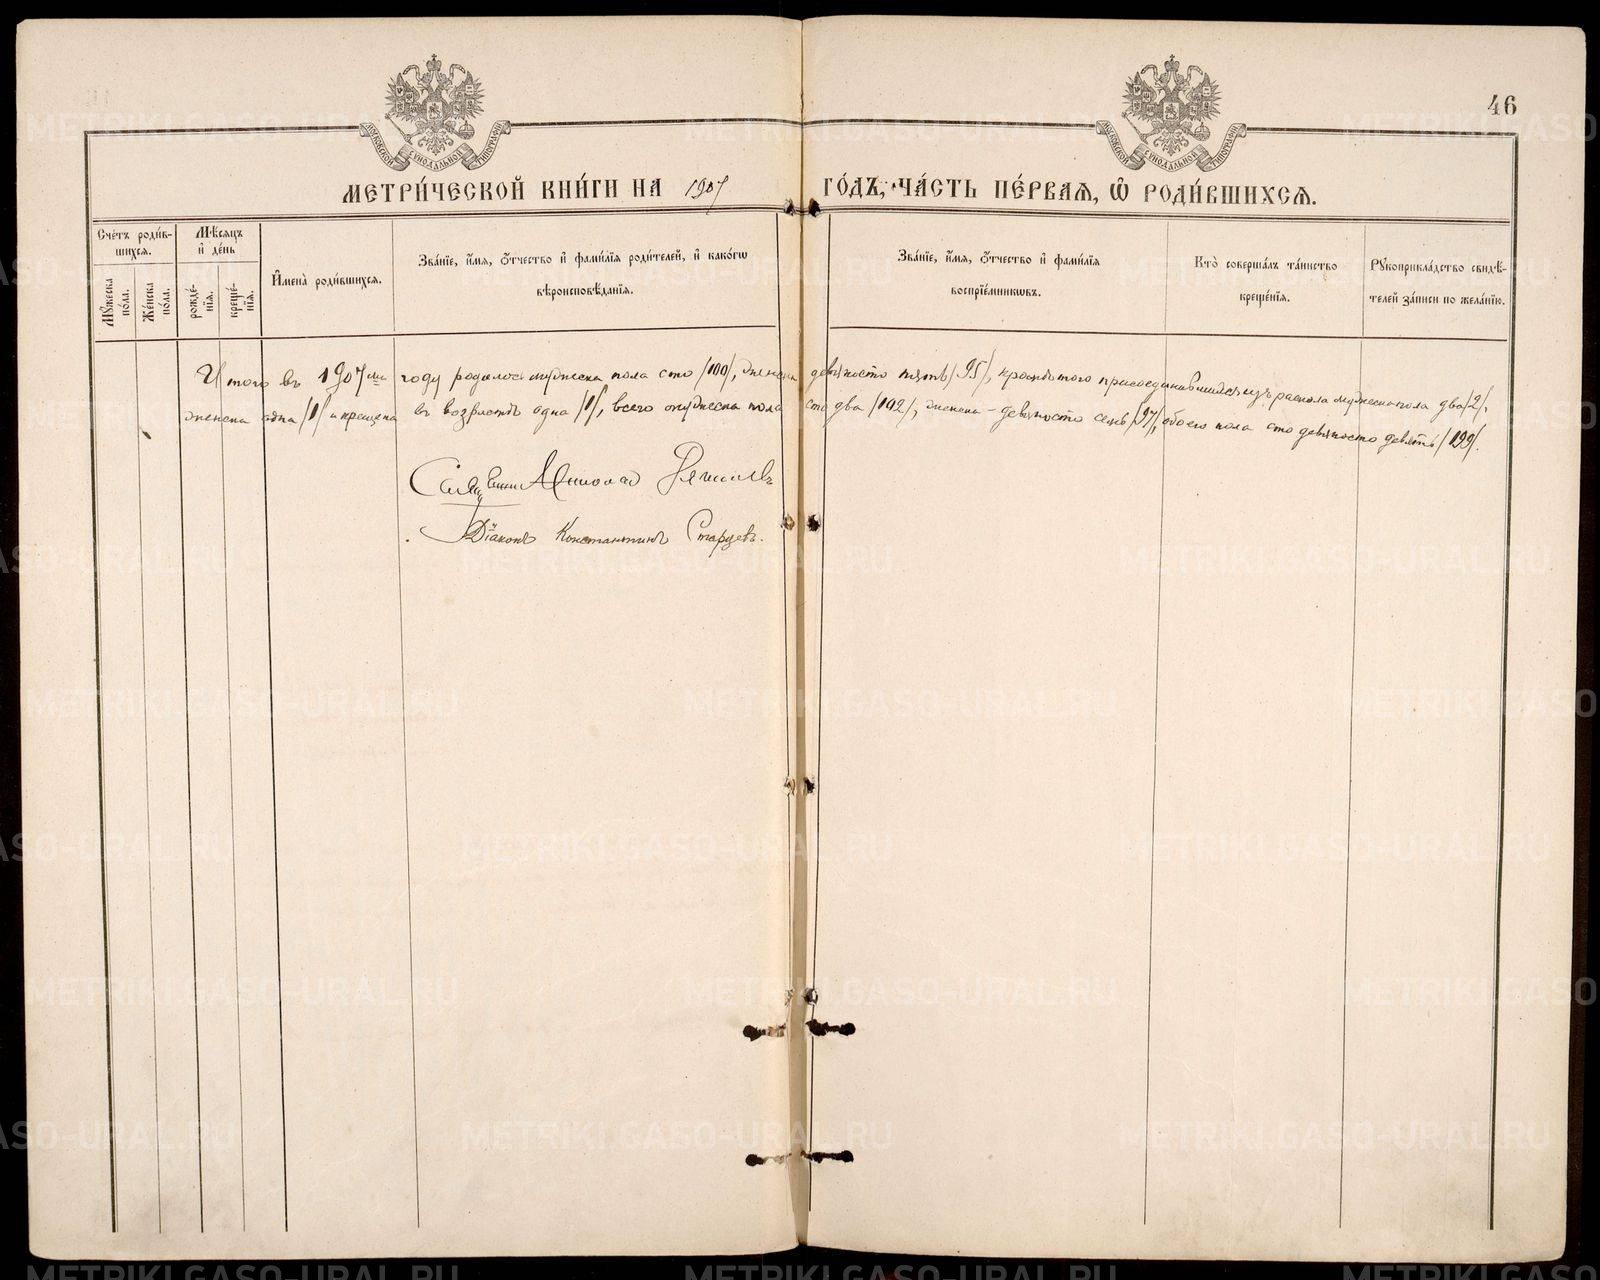 46
МОСКОВСКОЙ СѴНОДАЛЬНОЙ ТИПОГРАФІИ
МОСКОВСКОЙ СѴНОДАЛЬНОЙ ТИПОГРАФІИ
МЕТРИ́ЧЕСКОЙ КНИ́ГИ НА 1907 ГО́ДЪ, ЧА́СТЬ ПЕ́РВАЯ, Ѿ РОДИ́ВШИХСЯ.
Сче́тъ роди́вшихся.
Му́жеска по́ла.
Же́нска по́ла.
Мѣ́сяцъ и҆ де́нь
рожде́нїя.
креще́нїя.
И҆мена̀ роди́вшихся.
Зва́нїе, и҆́мя, ѻ҆́тчество и҆ фами́лїя роди́телей, и҆ како́гѡ
вѣроисповѣ́данїя.
Зва́нїе, и҆́мя, ѻ҆́тчество и҆ фами́лїя
воспрїе́мниковъ.
Кто̀ соверша́лъ та́инство
креще́нїя.
Рукоприкла́дство свидѣ́-
телей за́писи по жела́нїю.
Итого въ 1907 мъ году родилось мужеска пола сто /100/, женска девяносто пять /95/, кромѣ того присоединившихся изъ раскола мужеска пола два /2/,
женска одна /1/ и крещена въ возрастѣ одна /1/, всего мужеска пола сто два /102/, женска - девяносто семь /97/, обоего пола сто девяносто девять /199/.
Священникъ Николай
Діаконъ Константинъ Старцевъ.
METRIKI.GASO-URAL.RU